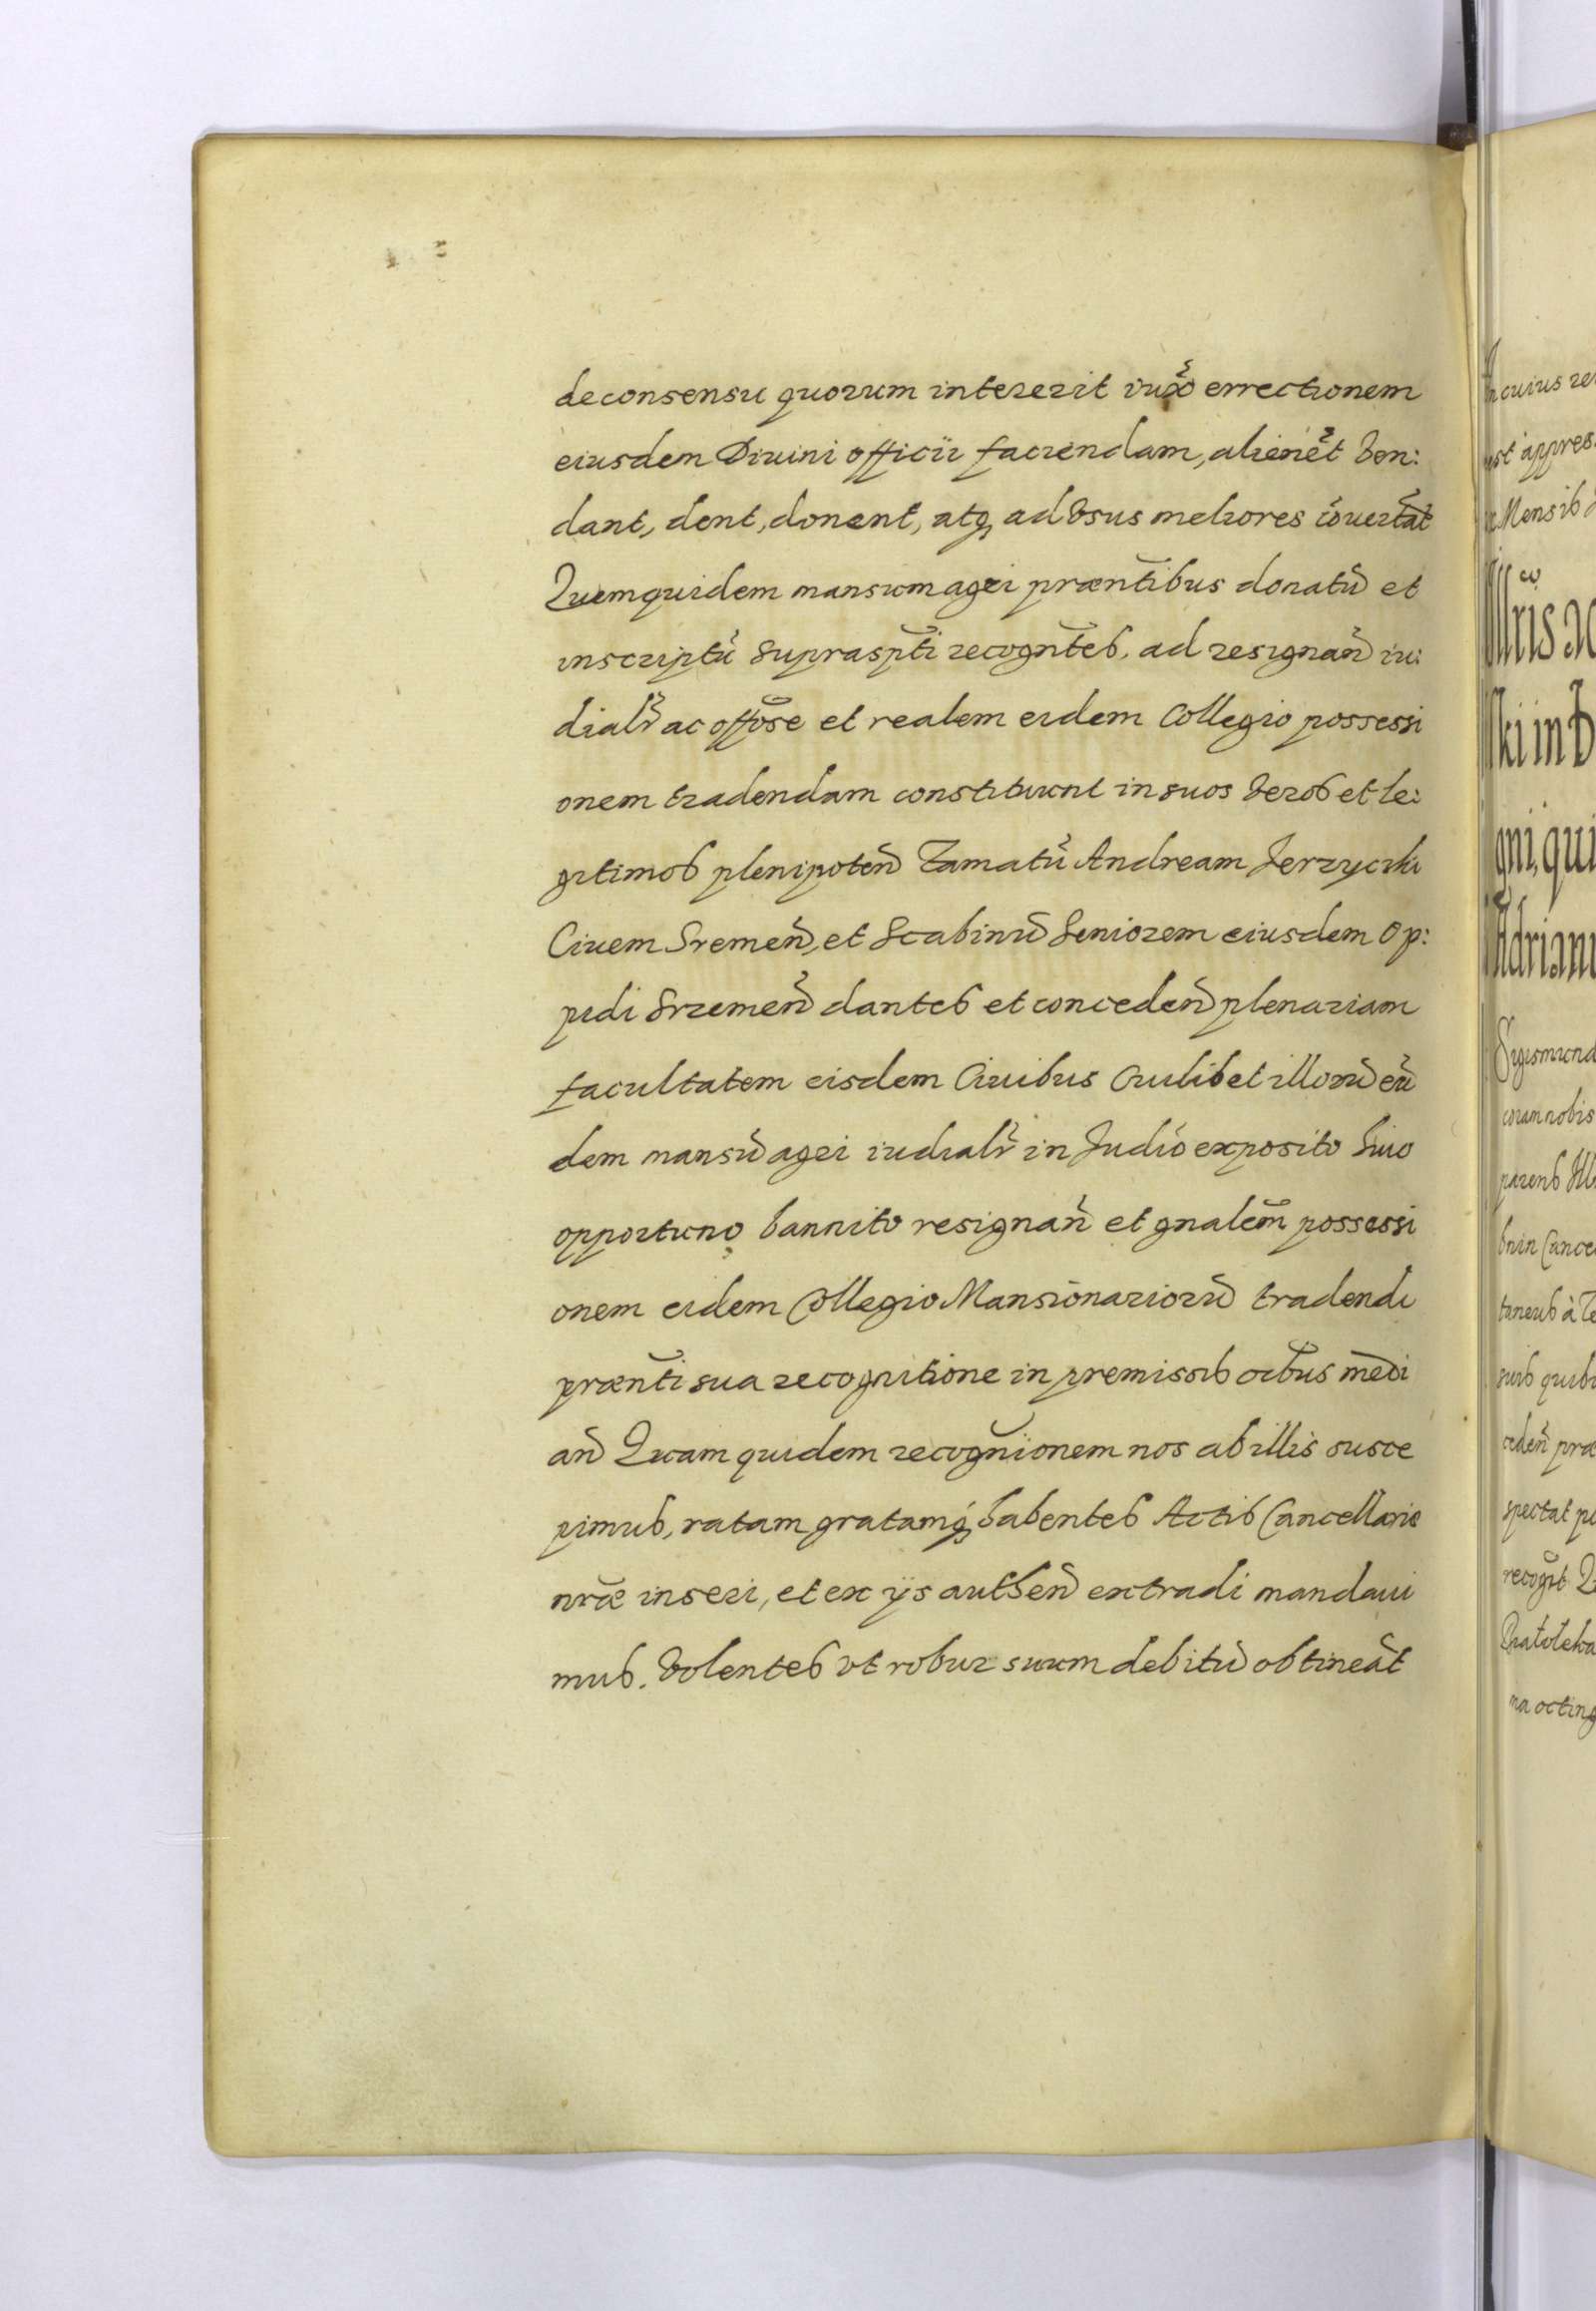 de consensu quorum intererit iuxõ errectionem
eiusdem Diuini officii faciendam, alienẽt ven:
dant, dent, donent, atq, ad vsus meliores cõuertãt
Quemquidem mansum agri præntibus donatũ et
inscriptũ supraspti recogntes, ad resignañ iu:
dialr ac offose et realem eidem Collegio possessi
onem tradendam constituunt in suos veros et le:
gitimos plenipoteñ Famatũ Andream Jerzycski
Ciuem Sremeñ, et Scabinũ Seniorem eiusdem Op:
pidi Srzemeñ dantes et concedeñ plenariam
facultatem eisdem Ciuibus Cuilibet illorũ eũ
dem mansũ agri iudialr in Judio exposito siuo
opportuno bannito resignañ et gnalem possessi
onem eidem Collegio Mansionariorũ tradendi
prænti sua recognitione in premissis oibus medi
añ Quam quidem recognionem nos ab illis susce
pimus, ratam gratamq habentes Actis Cancellarie
nræ inseri, et ex ijs autheñ extradi mandaui
mus. Volentes vt robur suum debitũ obtineãt
In cuius
est appres
Mensib
Sigismund
coram nobis
spectat
recognt